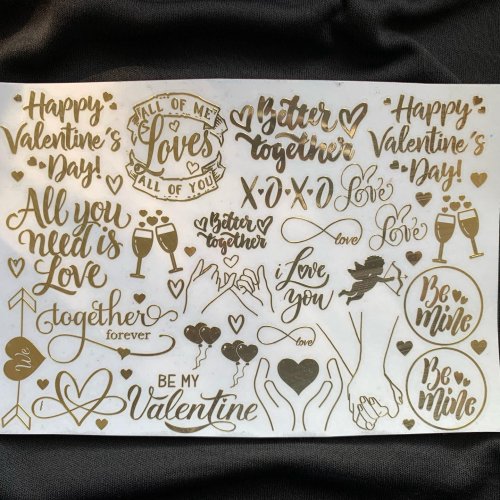 Happy
Valentine's
Day!
ALL OF ME
Loves
ALL OF YOU
Better
together
Happy
Valentine's
Day!
All you
need is
Love
X•O•X•O
Love
Love
Better
together
love
i Love
you
Be
mine
together
forever
We
love
BE MY
Valentine
Be
mine